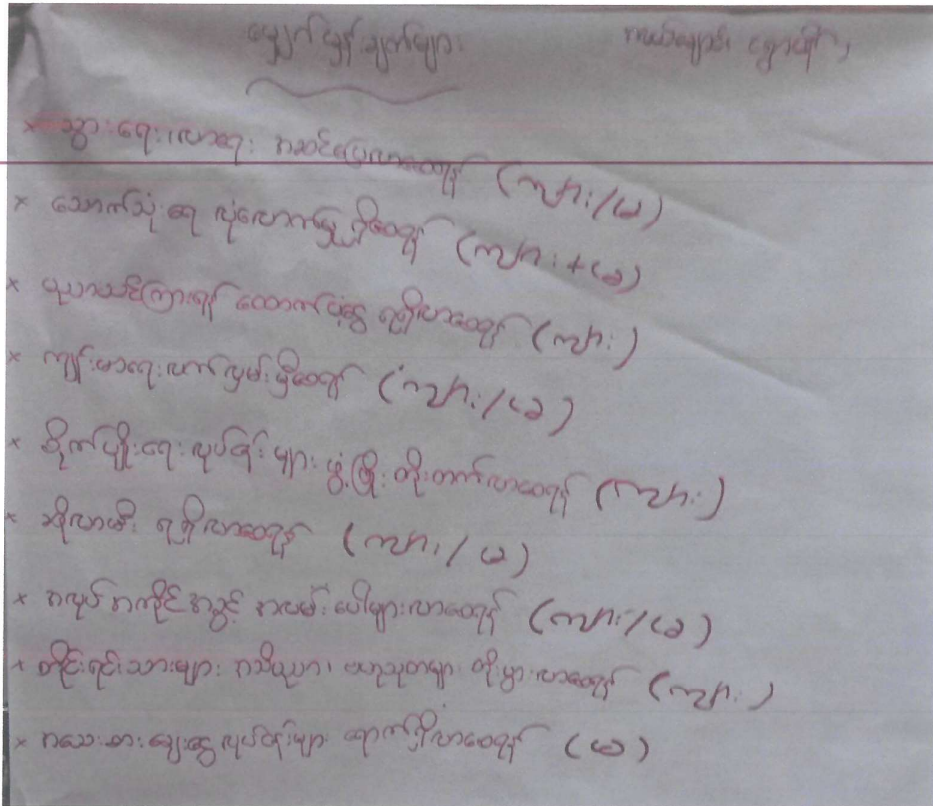 မျှော်မှန်းချက်များ
× သွားရေးလာရေး အဆင်ပြေလာစေရန် (ကျား/မ)
× သောက်သုံးရေ လုံလောက်မှုရှိစေရန် (ကျား+မ)
× ပညာသင်ကြားရန် ထောက်ပံ့ငွေ ရရှိလာစေရန် (ကျား)
× ကျန်းမာရေးလက်လှမ်းမှီစေရန် (ကျား/မ)
× စိုက်ပျိုးရေးလုပ်ငန်းများ ဖွံ့ဖြိုးတိုးတက်လာစေရန် (ကျား)
× ဆိုလာမီး ရရှိလာစေရန် (ကျား/မ)
× အလုပ်အကိုင်အခွင့်အလမ်းပေါများလာစေရန် (ကျား/မ)
× တိုင်းရင်းသားများ အသိပညာ၊ ဗဟုသုတများ တိုးပွားလာစေရန် (ကျား)
× အသေးစားချေးငွေလုပ်ငန်းများ ရောက်ရှိလာစေရန် (မ)